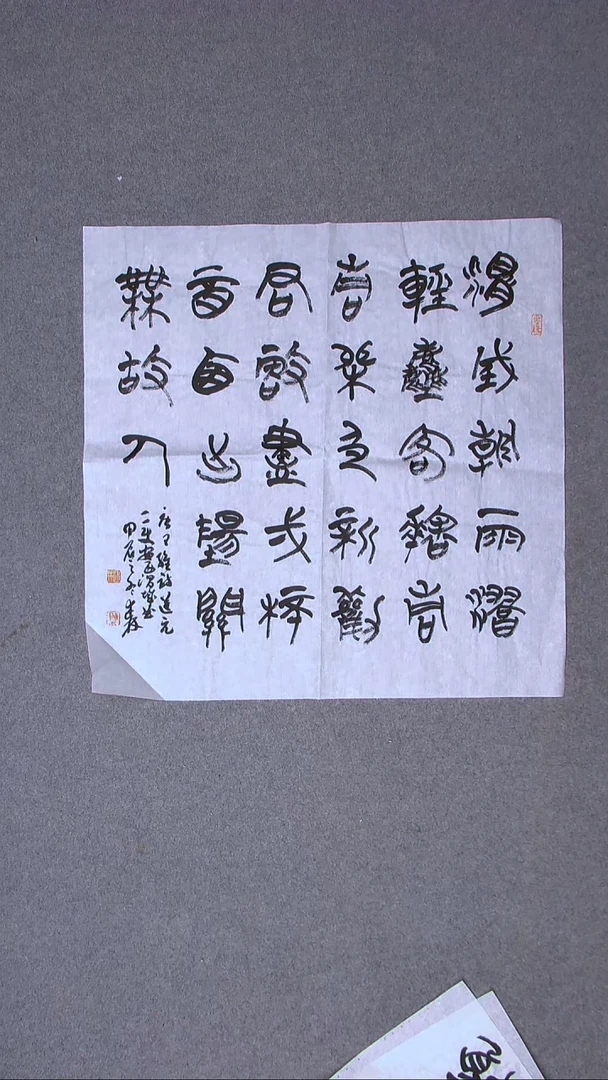 渭城朝雨浥
輕塵客舍青
青柳色新勸
君更盡弌杯
酒西出陽關
無故人
唐王維詩送元
二使安西渭城曲
甲辰之冬